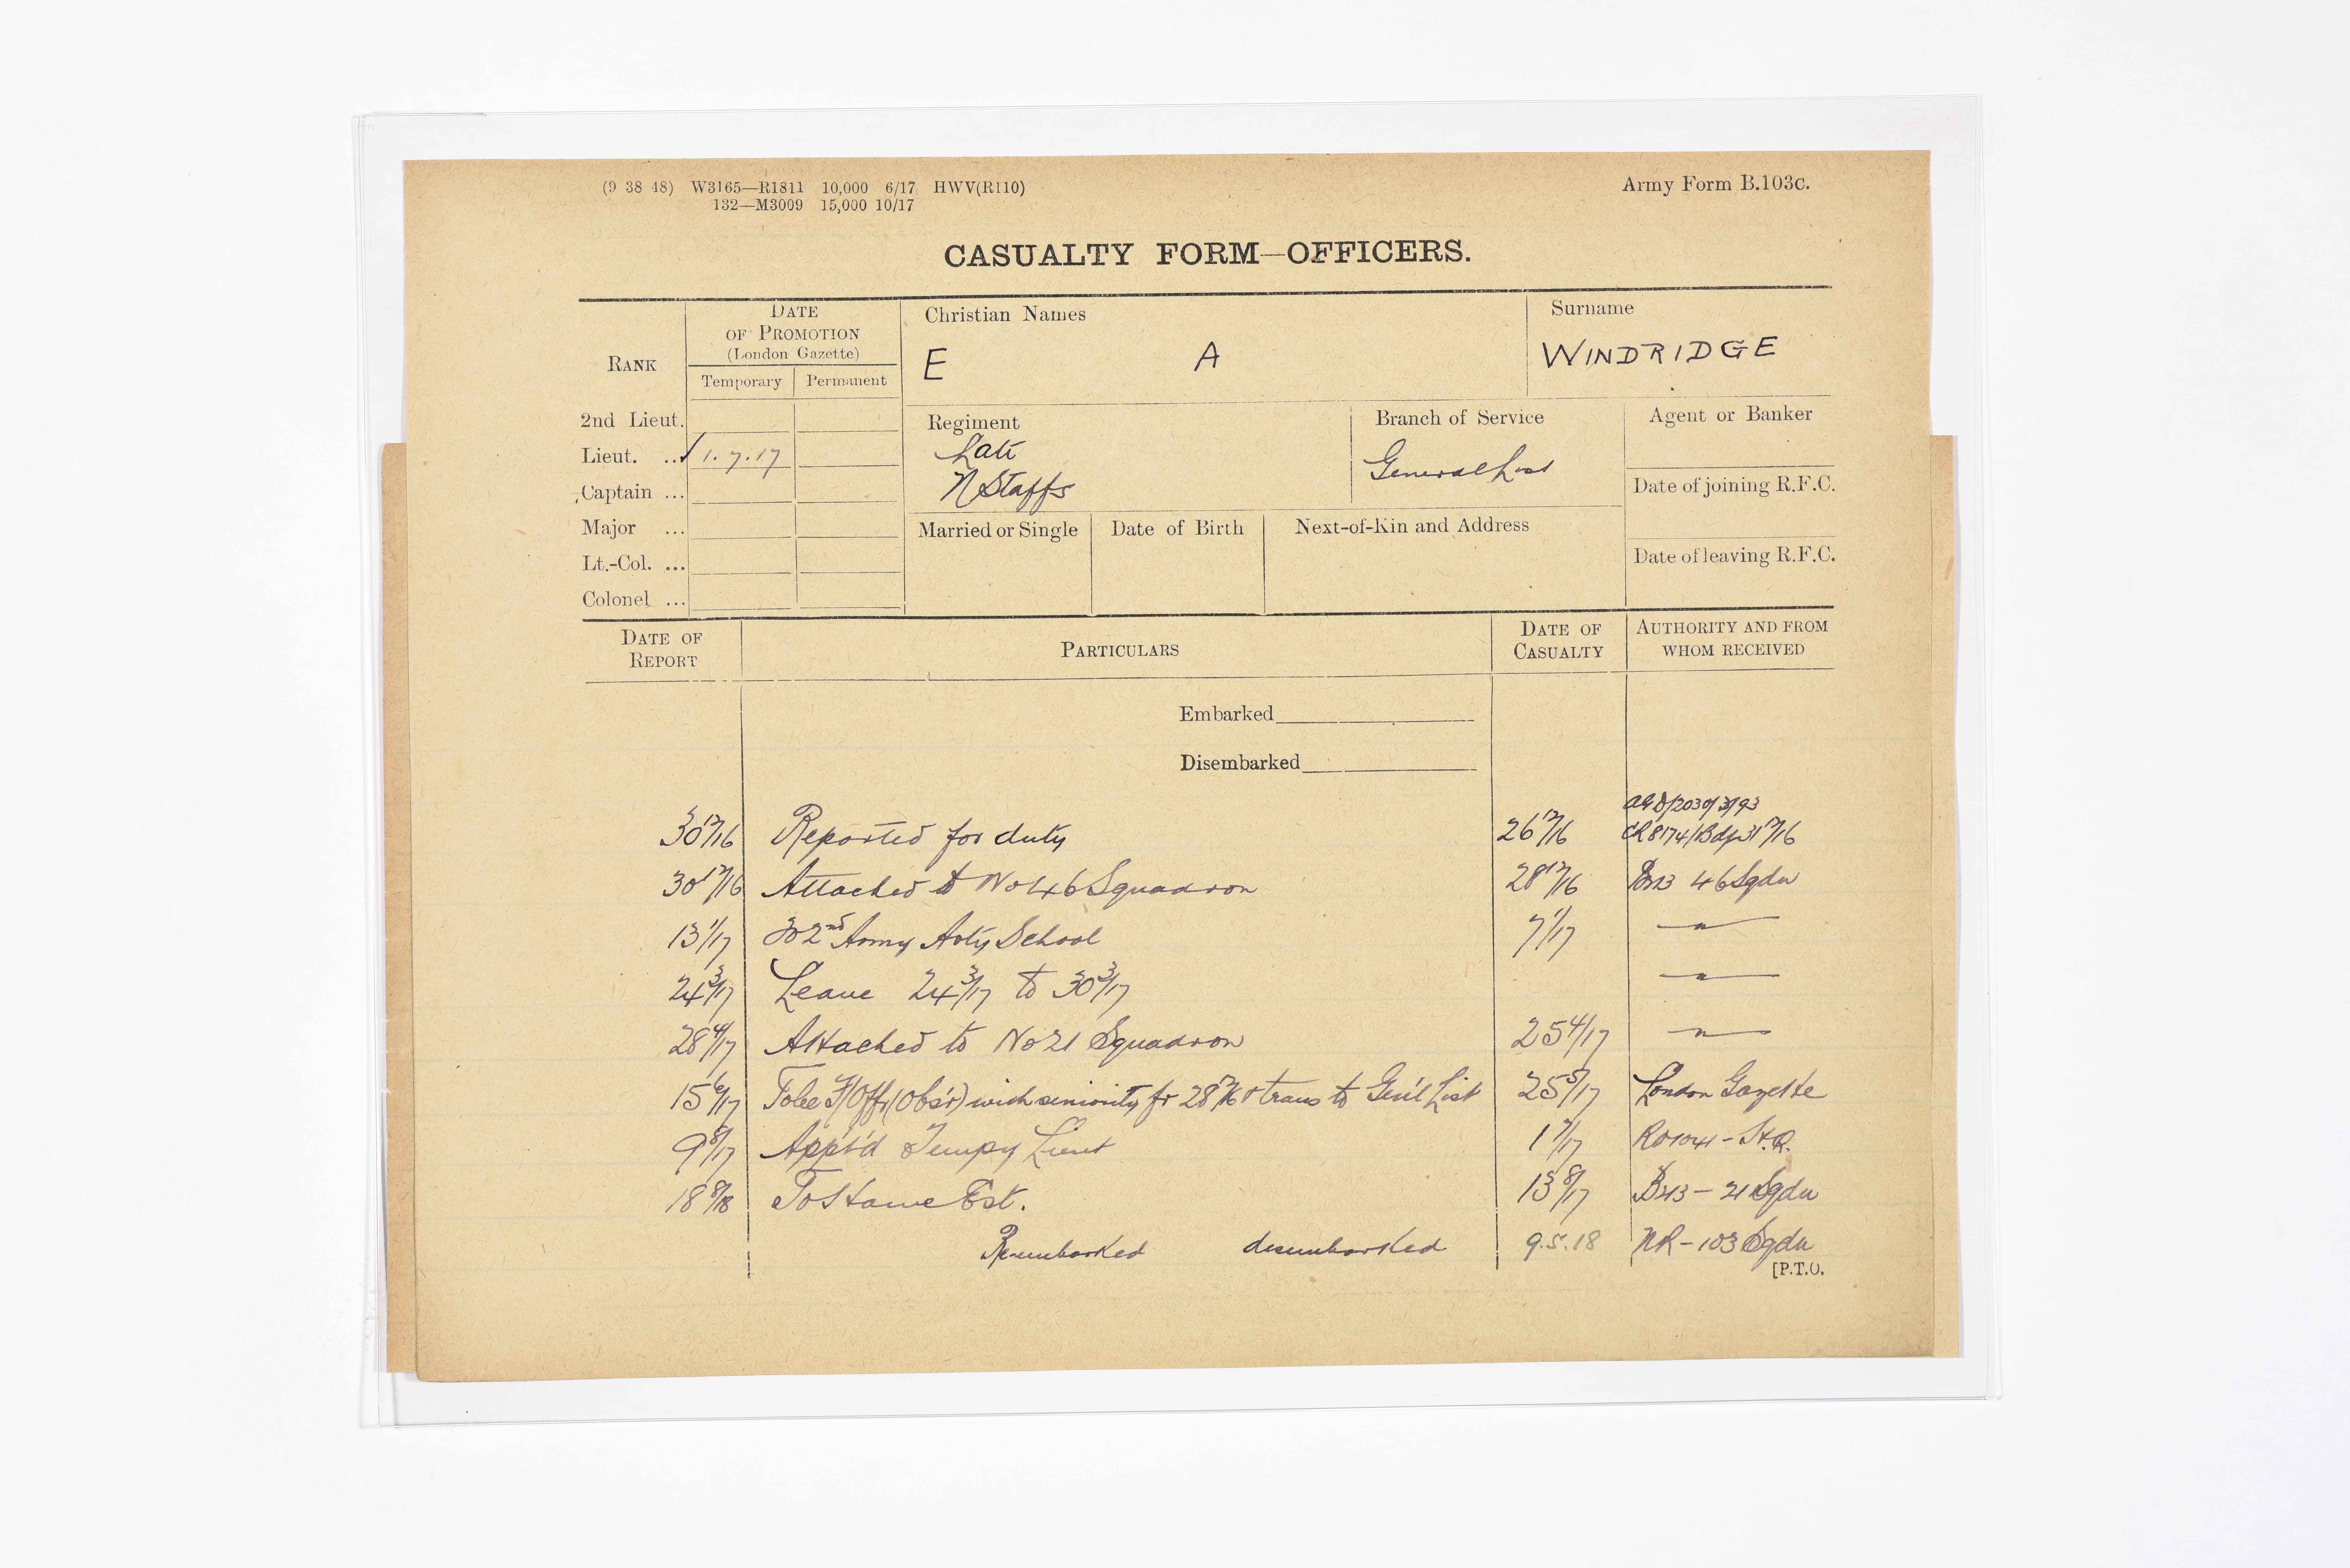 (9 38 48) W3165—R1811 10,000 6/17 HWV(R110)
132—M3009 15,000 10/17
Army Form B.103c.
CASUALTY FORM—OFFICERS.
RANK
DATE
OF PROMOTION
(London Gazette)
Temporary Permanent
Christian Names
E A
Surname
WINDRIDGE
2nd Lieut.
Lieut. ... 1.7.17
Captain ...
Major ...
Lt.-Col. ...
Colonel ...
Regiment
Late
N Staffs
Branch of Service
General List
Agent or Banker
Date of joining R.F.C.
Date of leaving R.F.C.
Married or Single
Date of Birth
Next-of-Kin and Address
DATE OF
REPORT
PARTICULARS
DATE OF
CASUALTY
AUTHORITY AND FROM
WHOM RECEIVED
Embarked
Disembarked
30 12/16 Reported for duty 26 12/16 CR8174/ 31 12/16
30 12/16 Attached to No 46 Squadron 28 12/16 B213 46 Sqdn
13 1/17 To 2nd Army Arty School 7 1/17 — " —
24 3/17 Leave 24 3/17 to 30 3/17 — " —
28 4/17 Attached to No 21 Squadron 25 4/17 — " —
15 6/17 To be F/Off (Obs'r) with seniority fr 28 12/16 & trans to Gen'l List 25 5/17 London Gazette
9 8/17 App't'd Tempy Lieut 1 7/17
18 8/18 To Home Est. 13 8/17 B213 — 21 Sqdn
Re-embarked disembarked 9.5.18 NR — 103 Sqdn
[P.T.O.